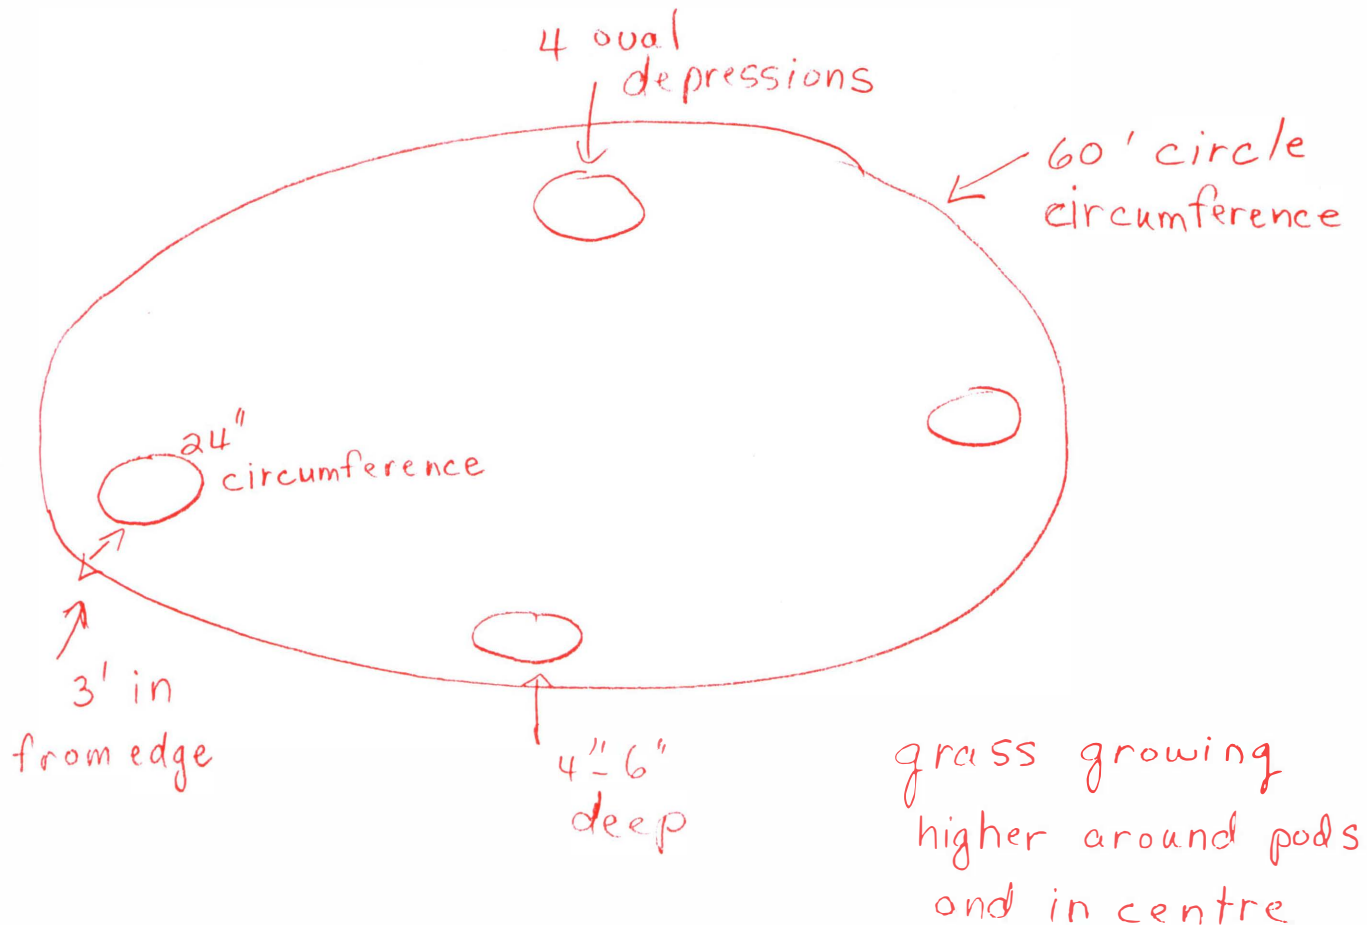 4 oval
depressions
60' circle
circumference
24"
circumference
3' in
from edge
4"-6"
deep
grass growing
higher around pods
and in centre